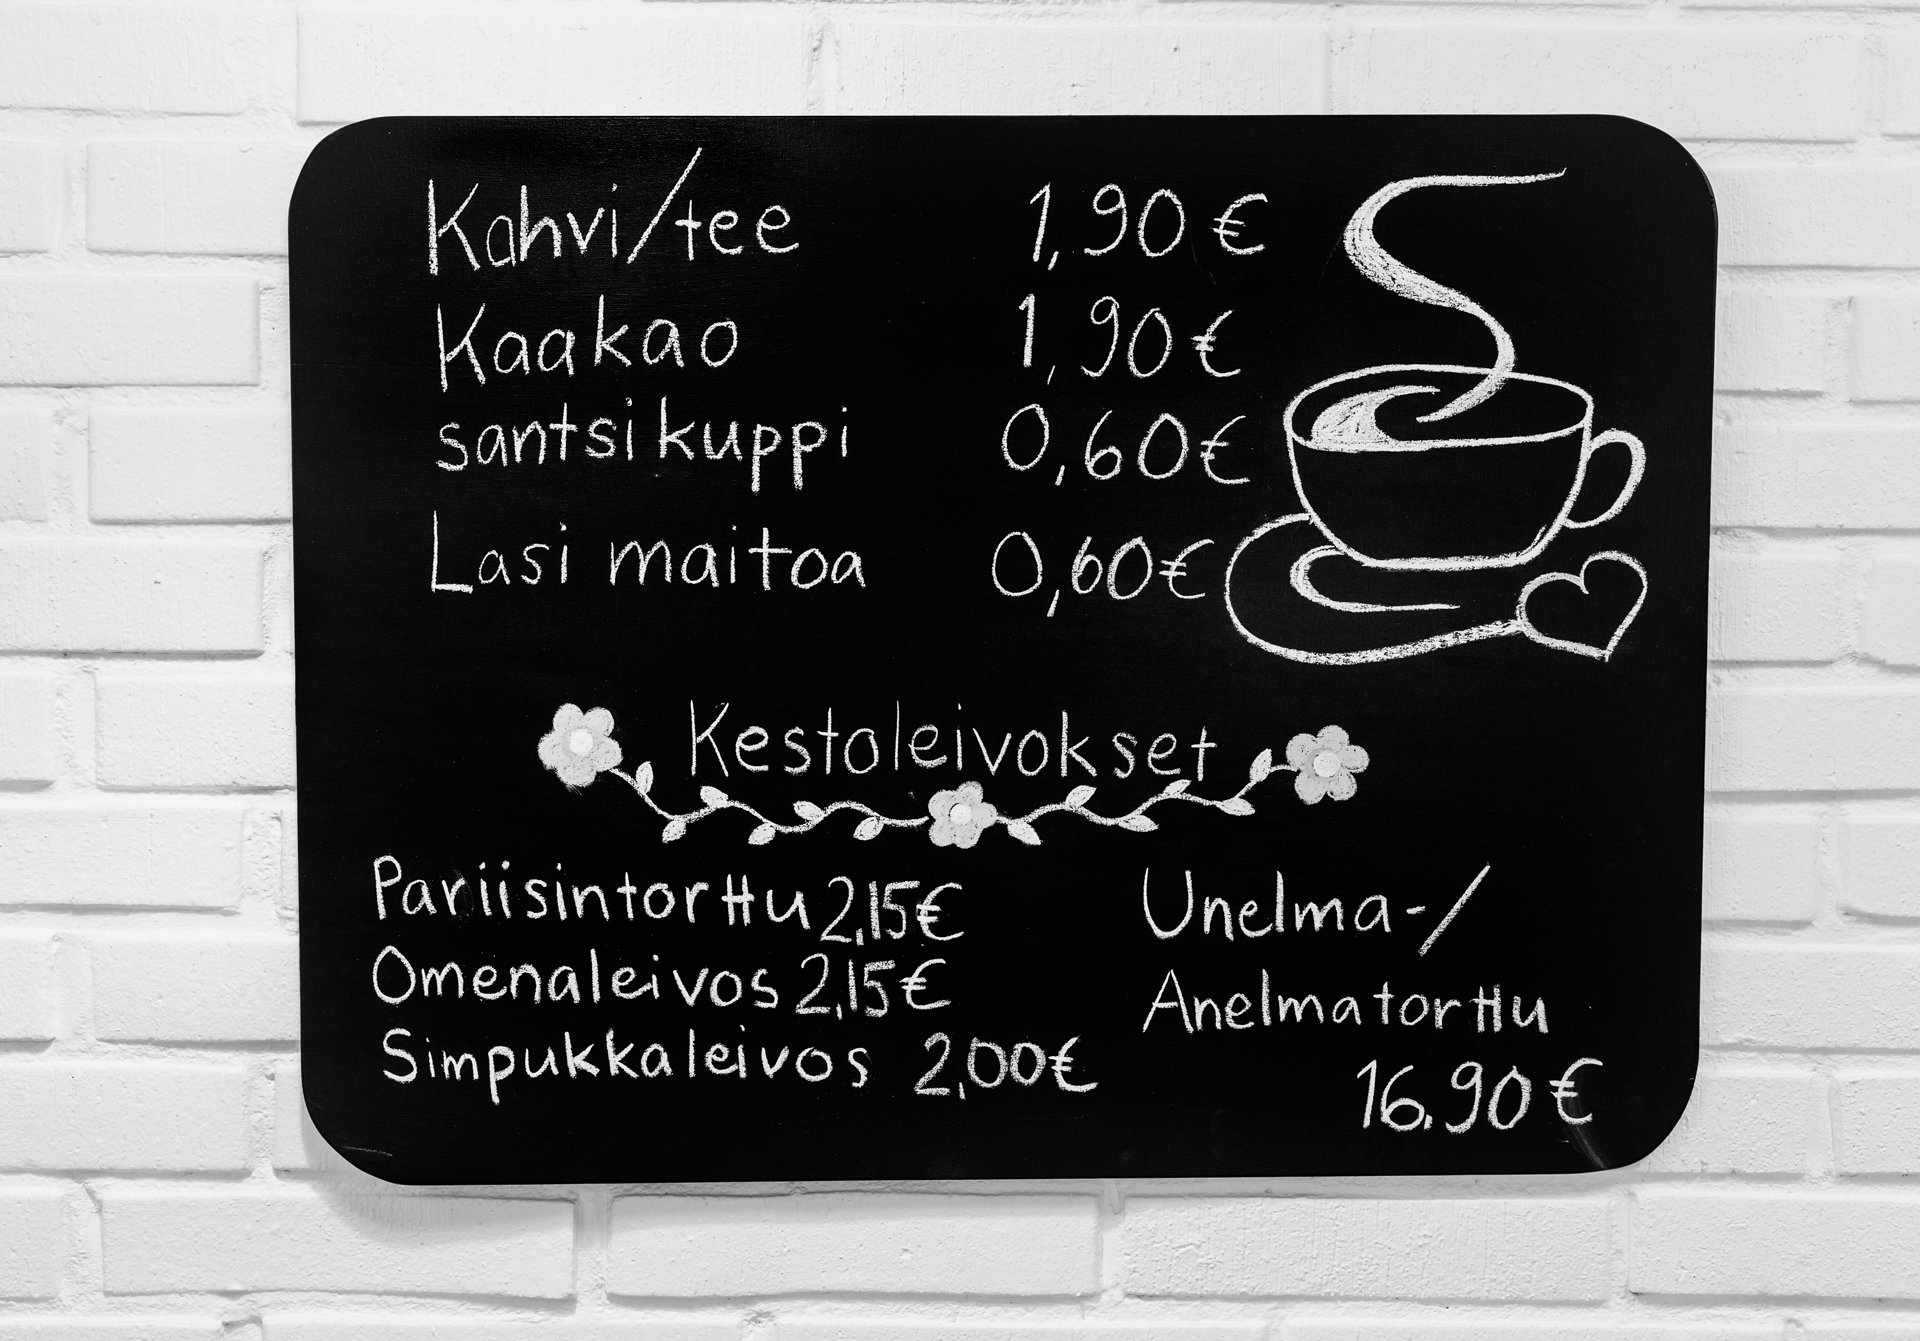 Kahvi/tee 1,90 €
Kaakao 1,90 €
santsikuppi 0,60 €
Lasi maitoa 0,60 €
Kestoleivokset
Pariisintorttu 2,15 €
Omenaleivos 2,15 €
Simpukkaleivos 2,00 €
Unelma-/
Anelmatorttu
16.90 €